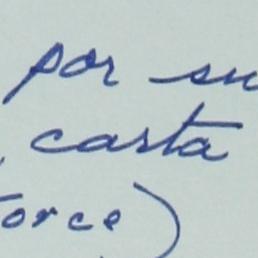 por su
, carta
Torce)